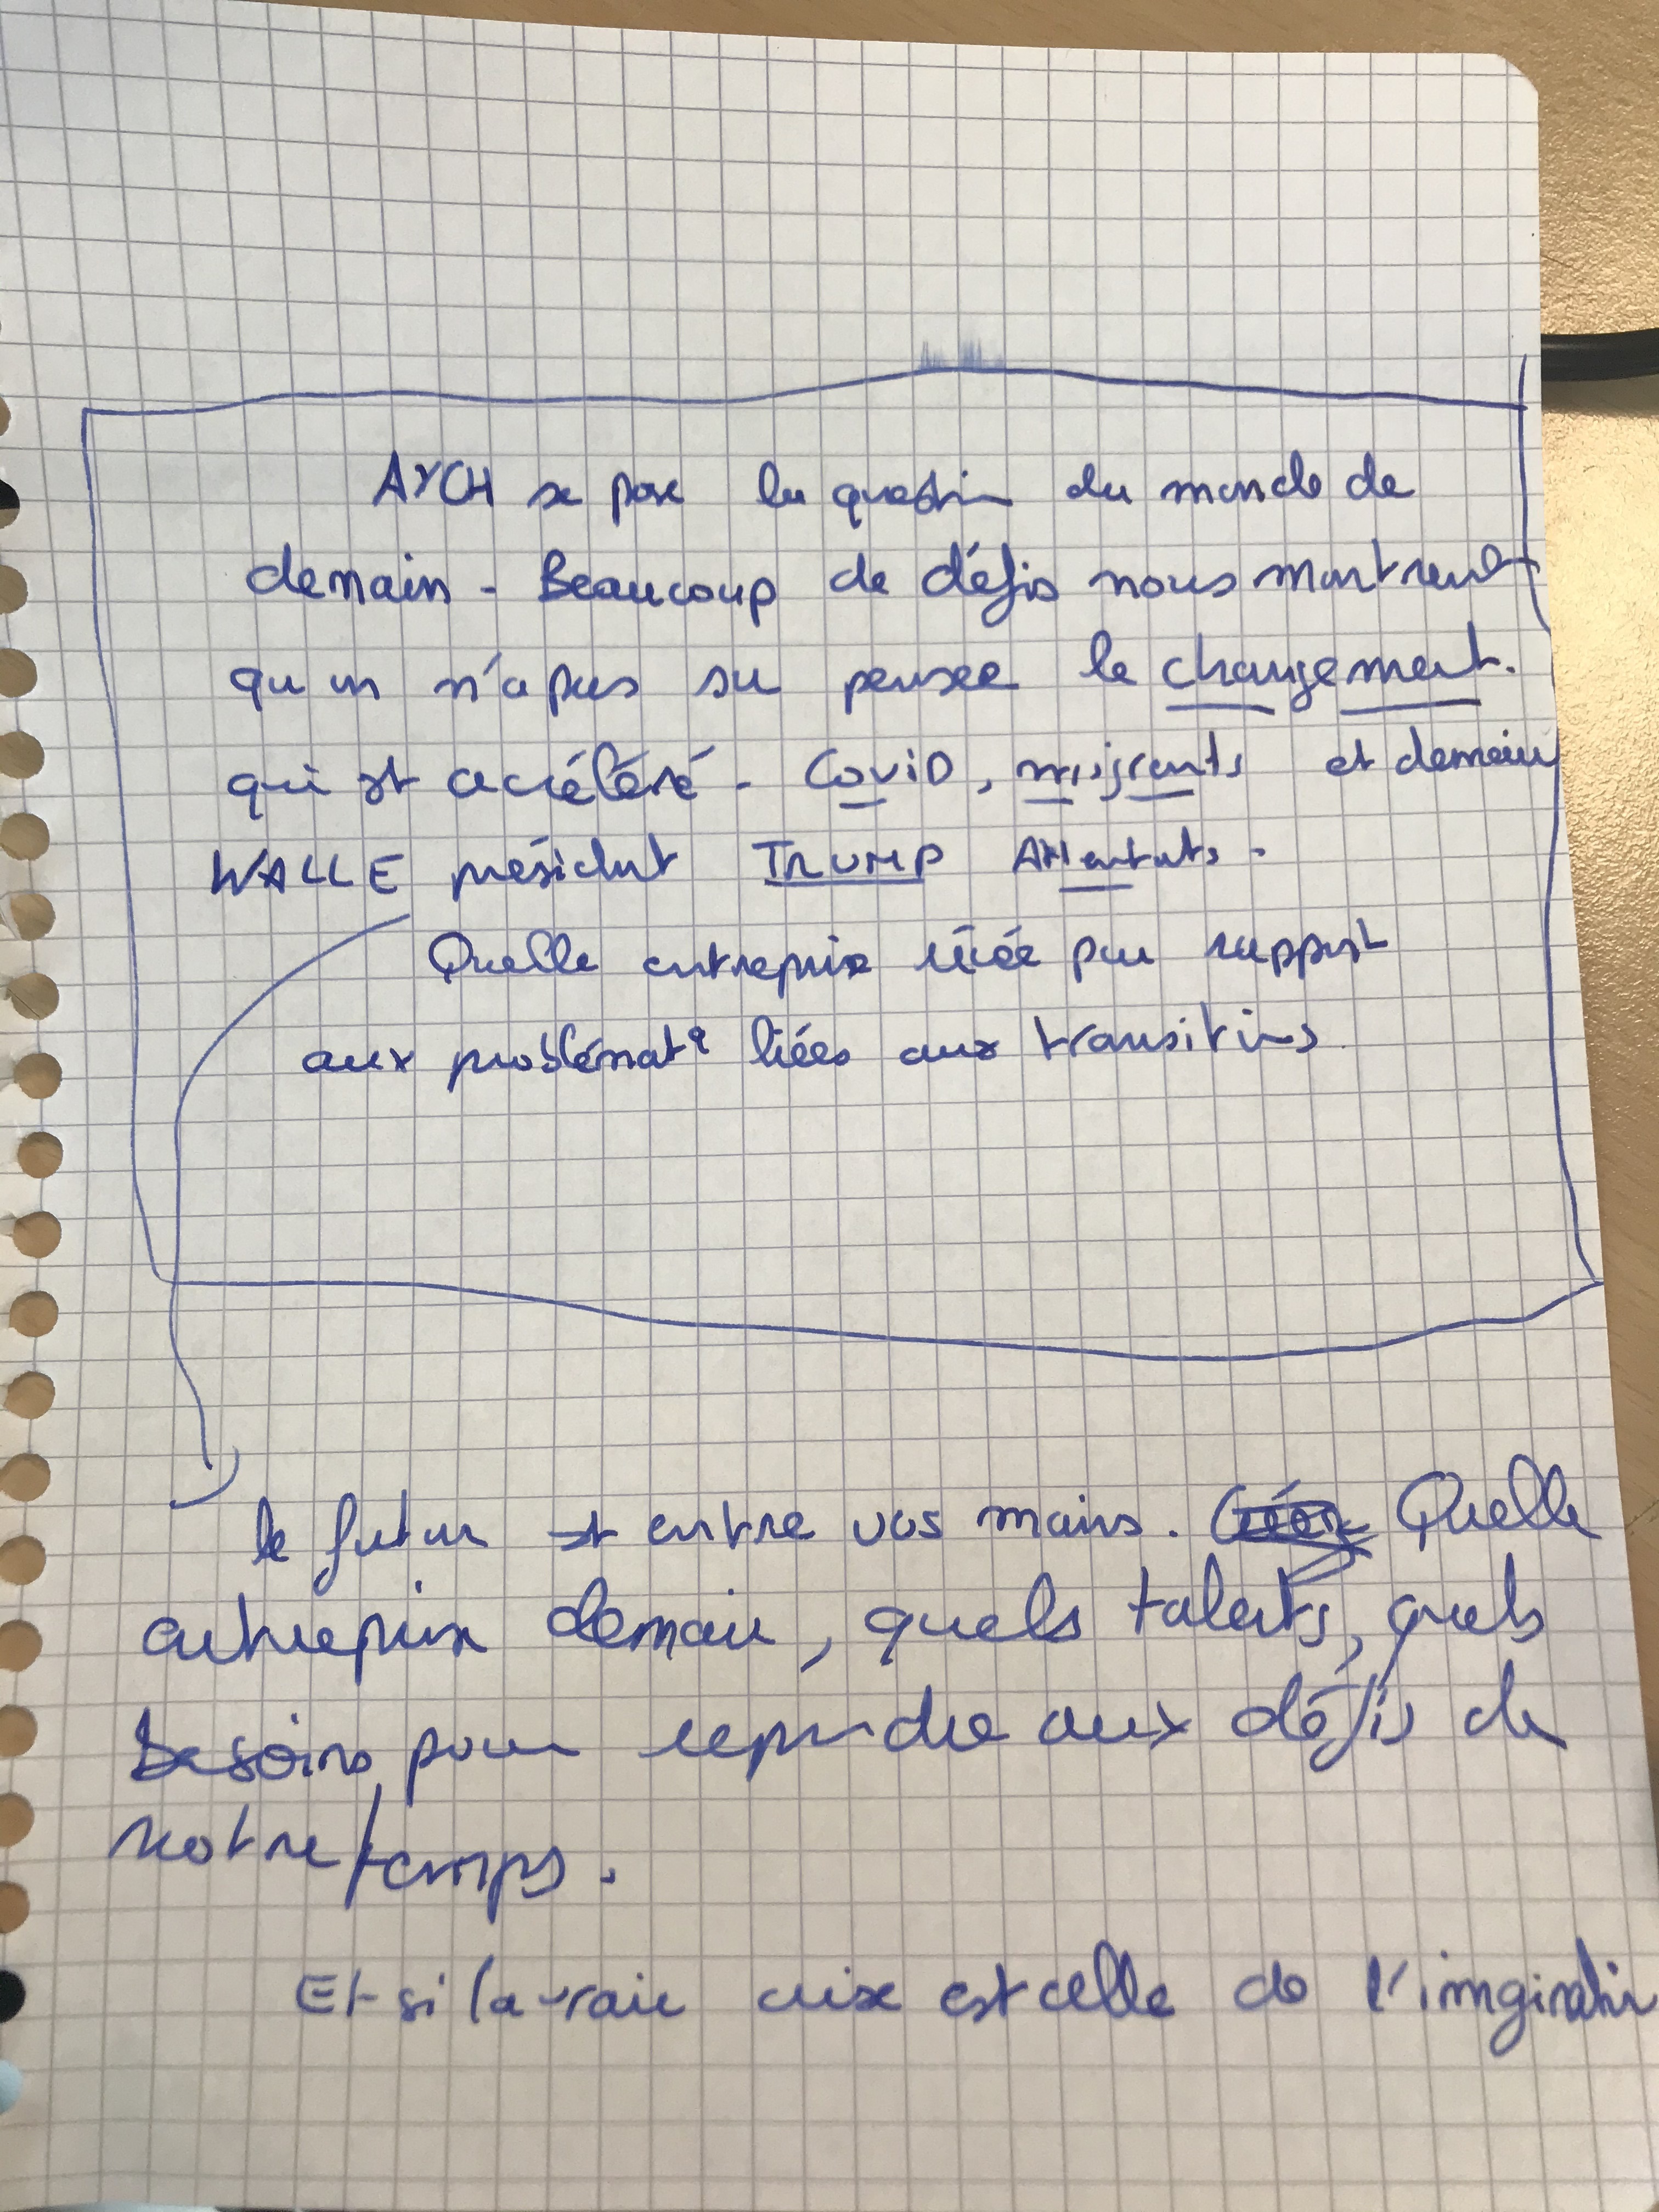 AYCH se pose la question du monde de
demain - Beaucoup de défis nous montrent
qu'on n'a pas su penser le changement.
qui est accéléré - Covid, migrants et demain
WALLE président TRUMP Attentats -
Quelle entreprise créée par rapport
aux problémat° liées aux transitions
le futur est entre vos mains. Quelle
entreprise demain, quels talents, quels
Besoins pour répondre aux défis de
notre temps.
Et si la vraie crise est celle de l'imgination